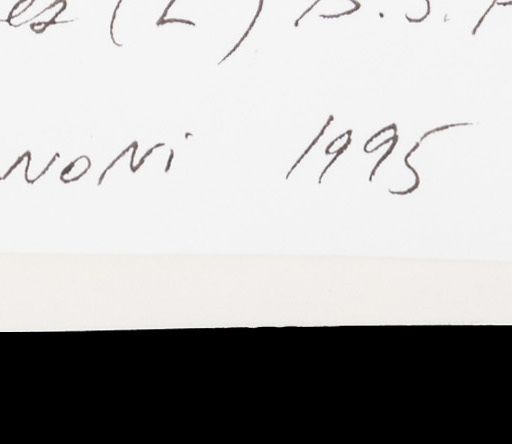 es (L) B.S.P
NONi 1995